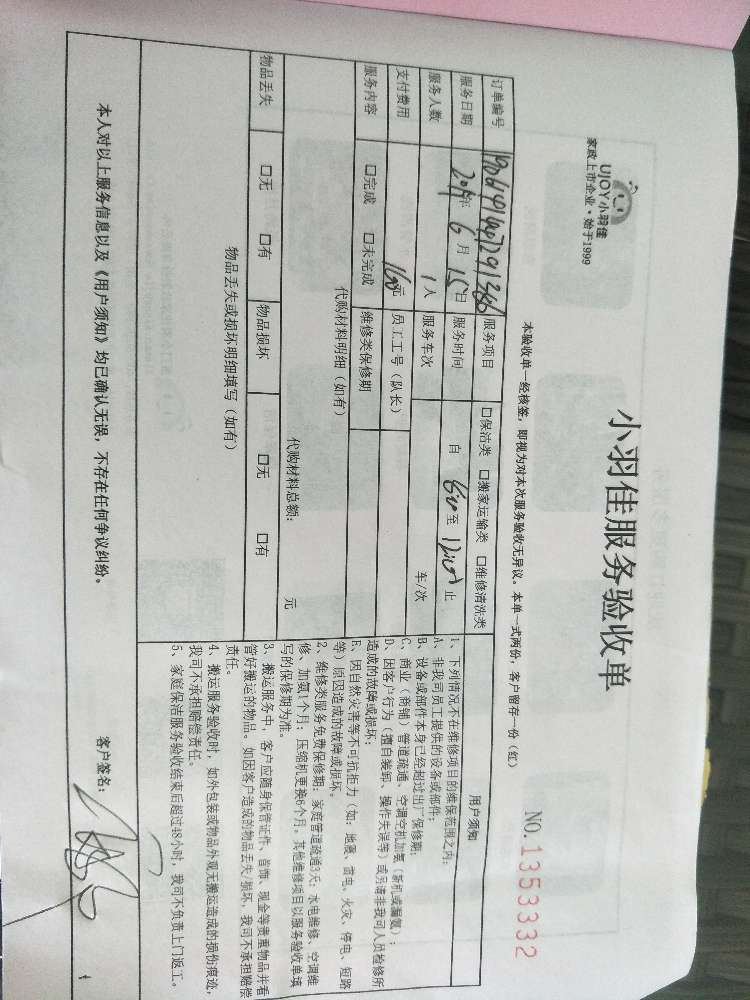 UJOY小羽佳
家政上市企业·始于1999
小羽佳服务验收单
NO.1353332
本验收单一经核签，即视为对本次服务验收无异议。本单一式两份，客户留存一份（红）
订单编号
服务项目 □保洁类 □搬家运输类 □维修清洗类
服务日期 2019年 6月 15日 服务时间 自 至 止
服务人数 1人 服务车次 车/次
支付费用 160元 员工工号（队长）
服务内容 □完成 □未完成 维修类保修期
代购材料明细（如有）
代购材料总额： 元
物品丢失 □无 □有 物品损坏 □无 □有
物品丢失或损坏明细填写（如有）
用户须知
1、下列情况不在维修项目的维保范围之内：
A、非我司员工提供的设备或部件；
B、设备或部件本身已经超过出厂保修期；
C、商业（商铺）管道疏通、空调空机加氨（新机或漏氨）；
D、因客户行为（擅自装卸、操作失误等）或另请非我司人员检修所
造成的故障或损坏；
E、因自然灾害等不可抗拒力（如：地震、雷电、火灾、停电、短路
等）原因造成的故障或损坏。
2、维修类服务免费保修期：家庭管道疏通3天；水电维修、空调维
修、加氨1个月；压缩机更换6个月。其他维修项目以服务验收单填
写的保修期为准。
3、搬运服务中，客户应随身保管证件、首饰、现金等贵重物品并看
管好搬运的物品。如因客户造成的物品丢失/损坏，我司不承担赔偿
责任。
4、搬运服务验收时，如外包装或物品外观无搬运造成的损伤痕迹，
我司不承担赔偿责任。
5、家庭保洁服务验收结束后超过48小时，我司不负责上门返工。
本人对以上服务信息以及《用户须知》均已确认无误，不存在任何争议纠纷。
客户签名：